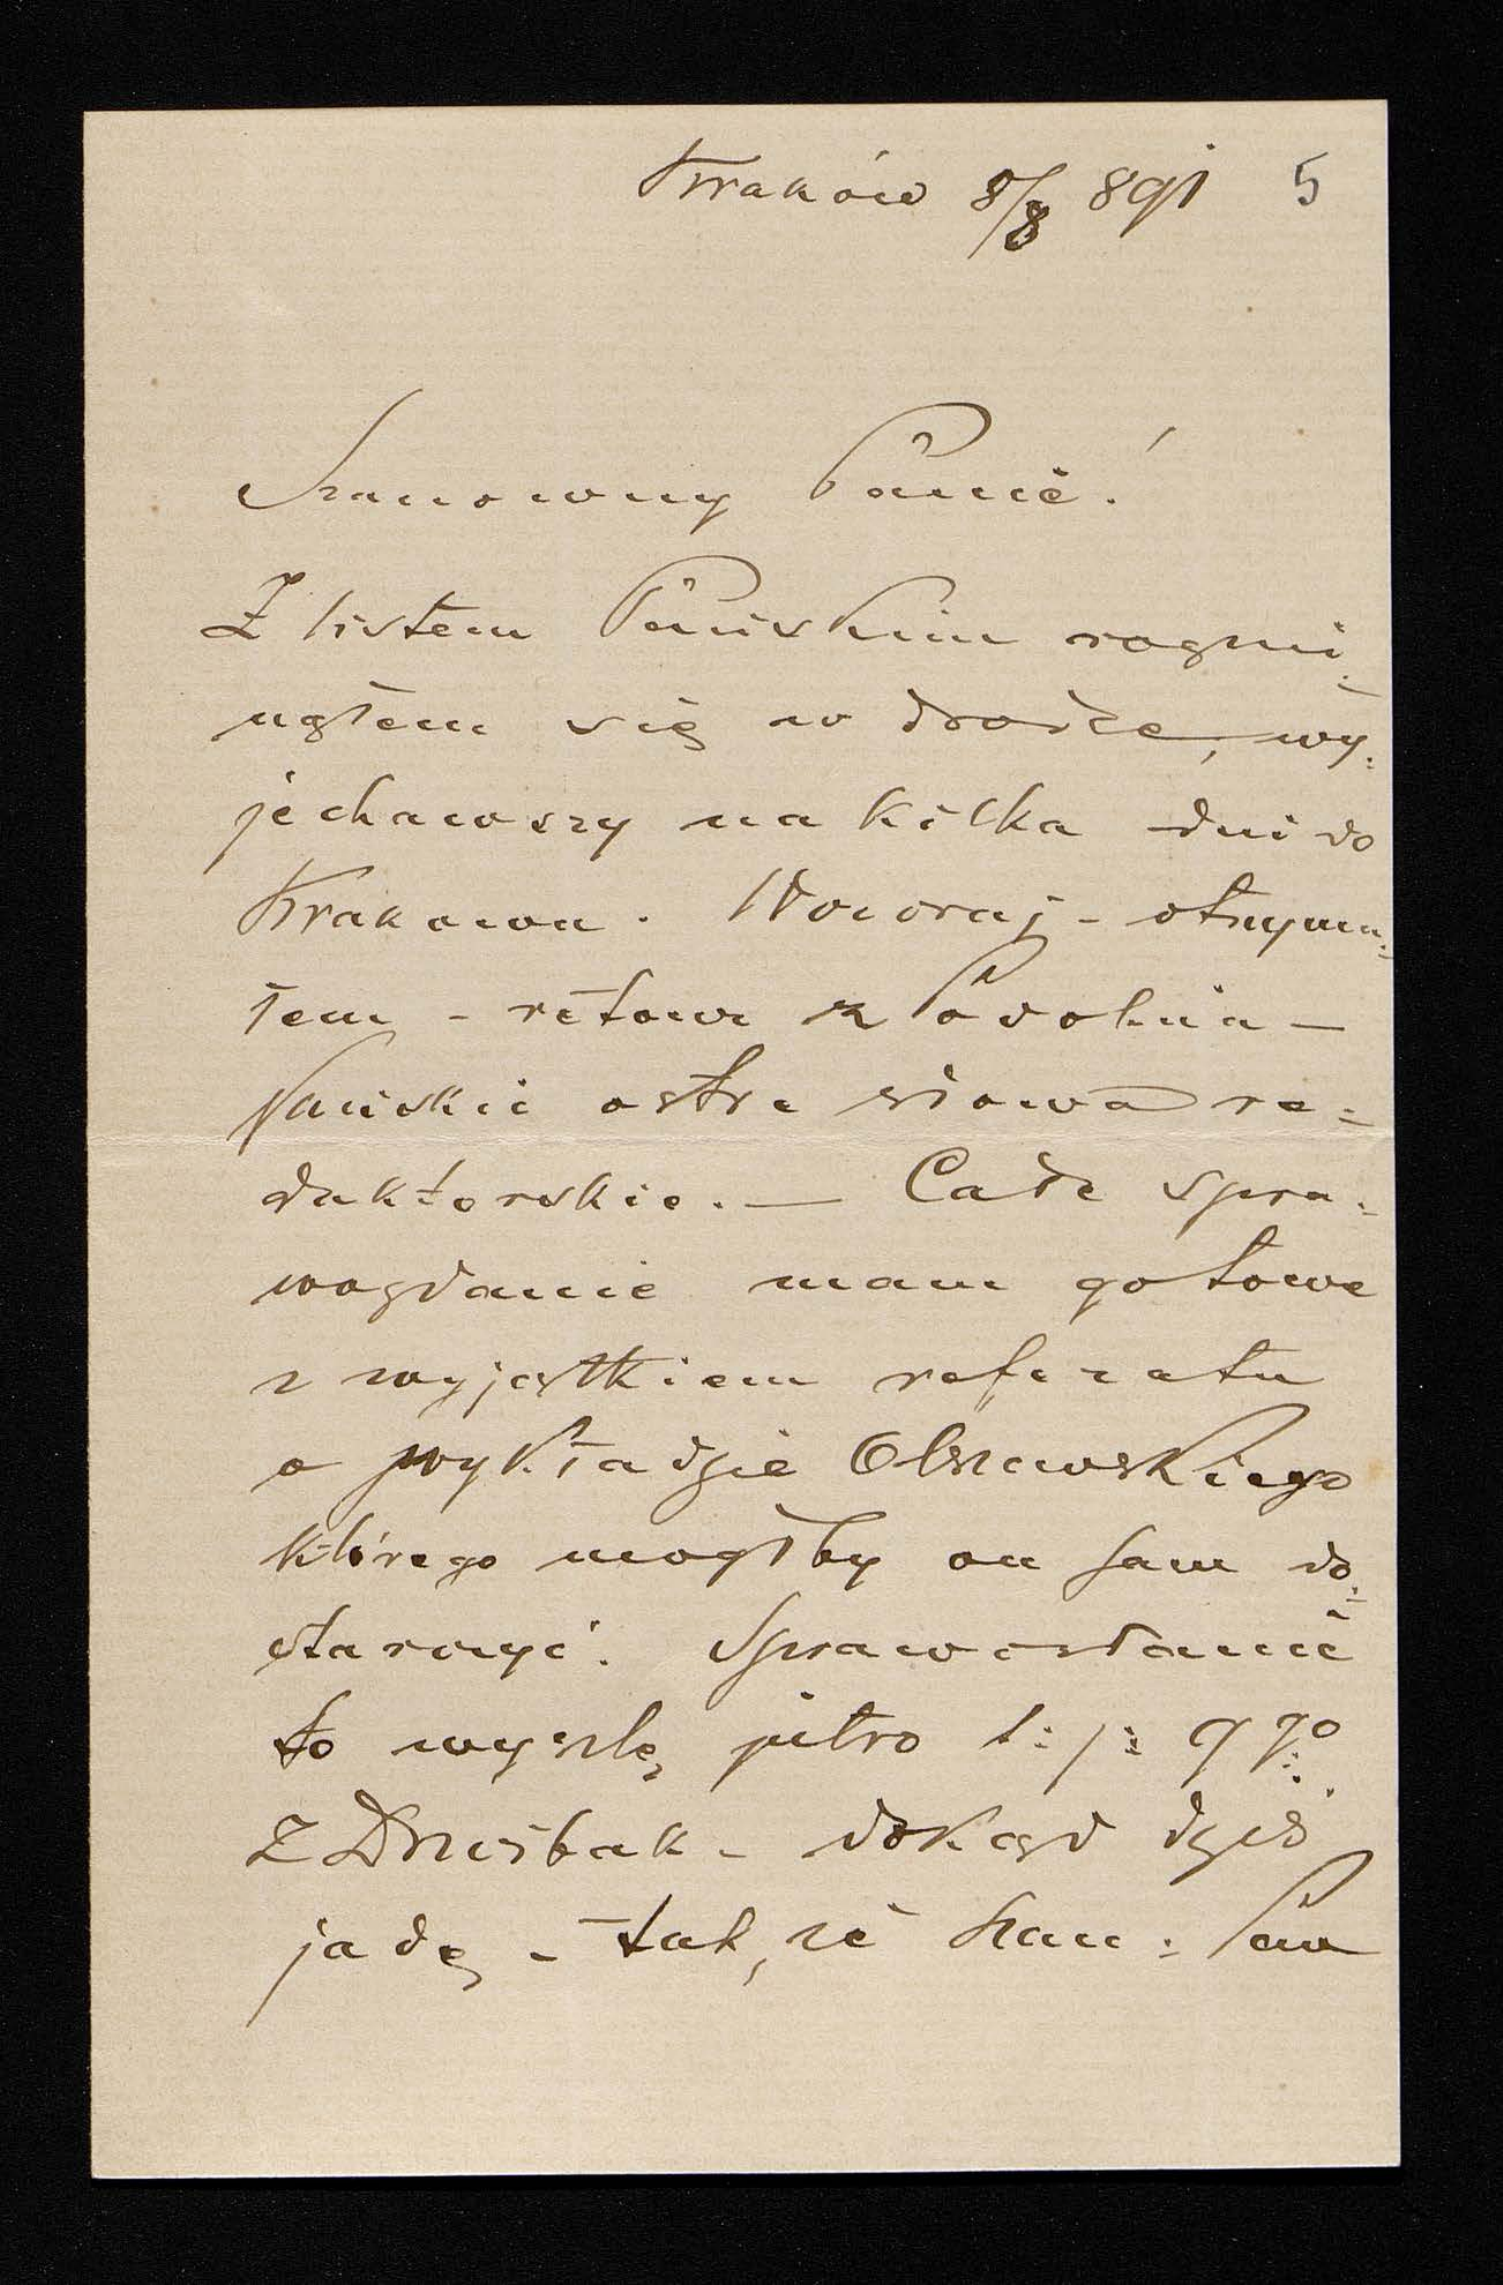 Kraków 8/8 891 5
Szanowny Panie!
Z listem Pańskim rozmi=
nąłem się w drodze, wy=
jechawszy na kilka dni do
Krakowa. Wczoraj - otrzyma=
łem - retour z
Pańskie ostre słowa re=
daktorskie. — Całe spra=
wozdanie mam gotowe
z wyjątkiem referatu
o wykładzie Olszewskiego
którego mógłby on sam do=
starczyć. Sprawozdanie
to wyszlę jutro t: j: 9 go
z - dokąd dziś
jadę - tak, że Szan: Pan